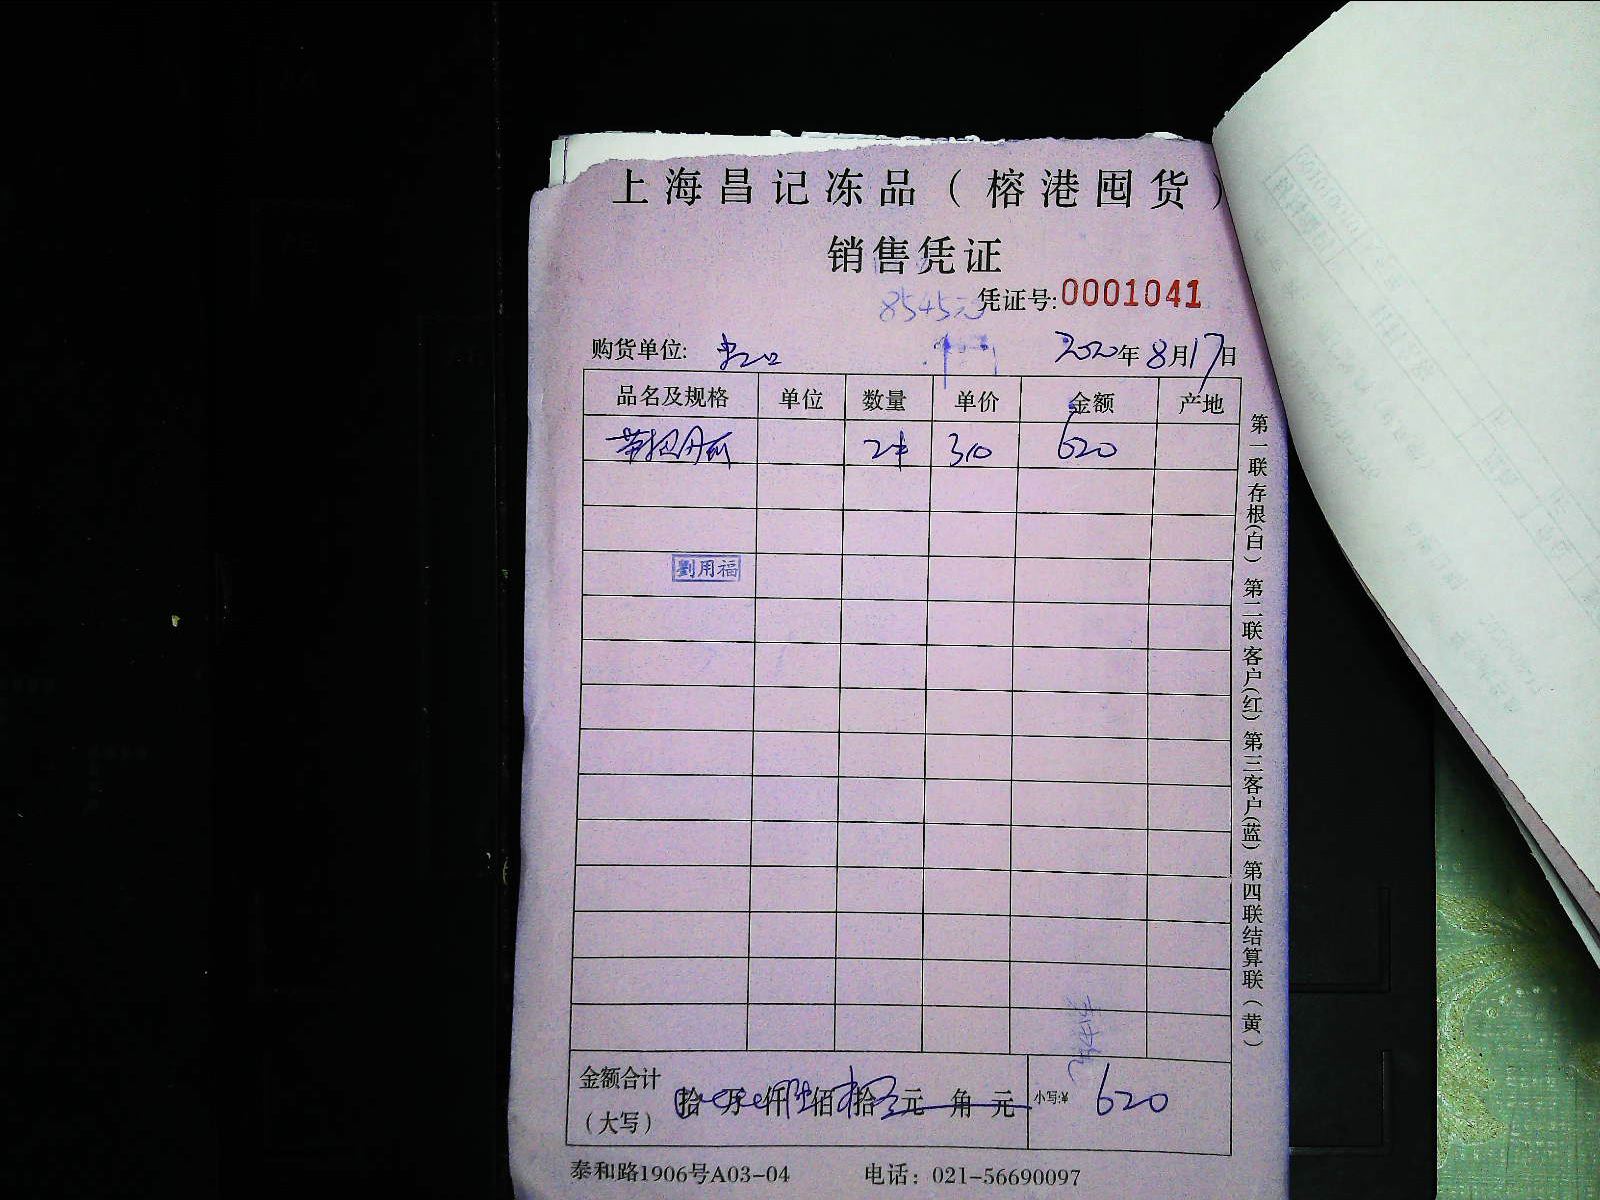 上海昌记冻品（榕港囤货）
销售凭证
8545元
凭证号:0001041
购货单位:
2020年8月17日
品名及规格 单位 数量 单价 金额 产地
2件 310 620
劉用福
金额合计（大写） 拾 万 仟 佰 拾 元 角 元 小写:¥ 620
泰和路1906号A03-04 电话：021-56690097
第一联存根(白) 第二联客户(红) 第三客户(蓝) 第四联结算联（黄）